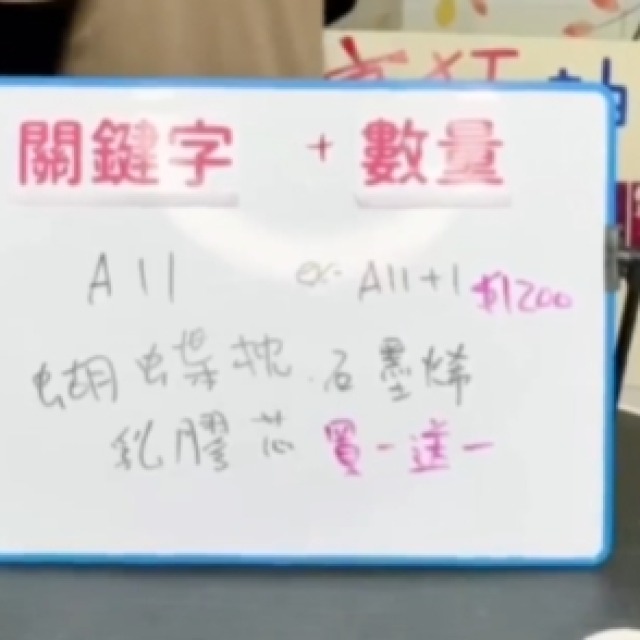 關鍵字 + 數量
A11 ex. A11+1 $1200
蝴蝶枕.石墨烯
乳膠芯 買一送一